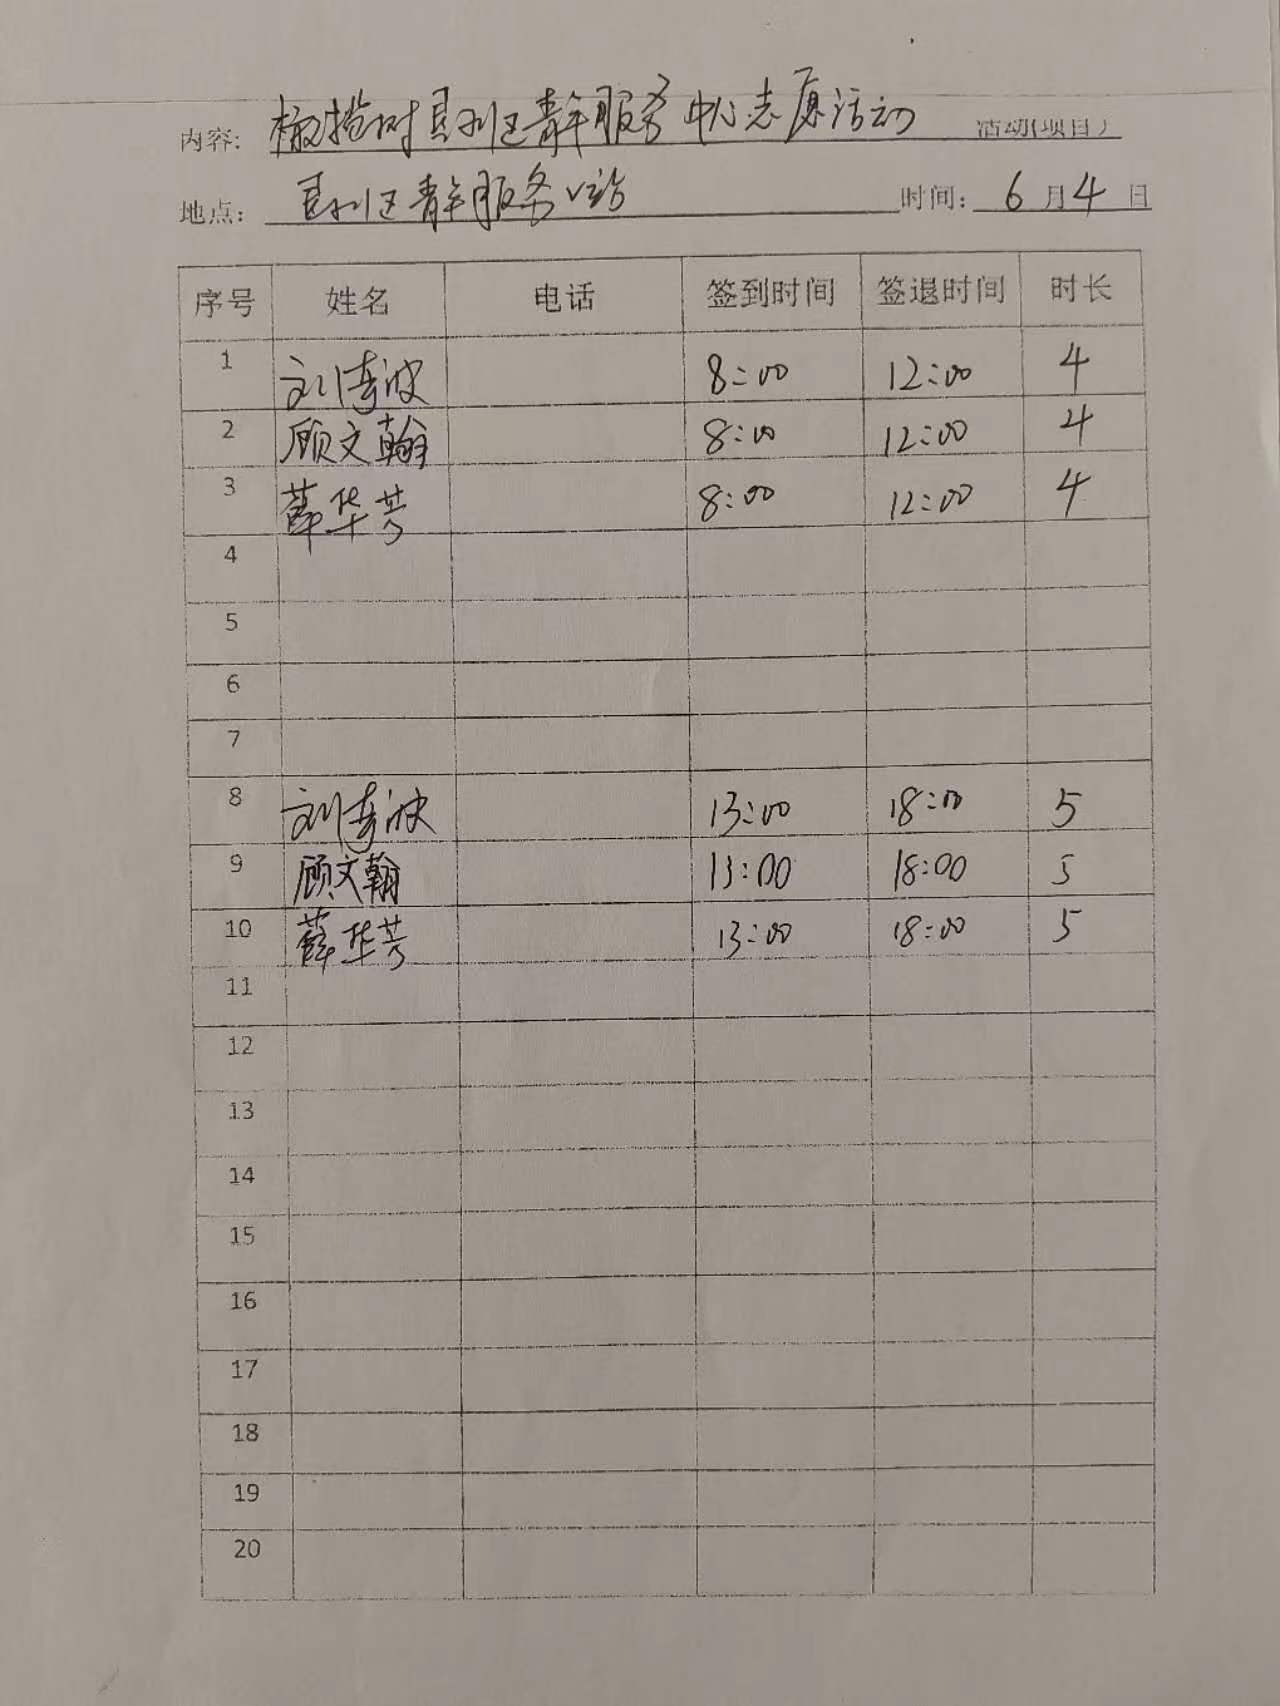 内容: 橄榄树县州区青年服务中心志愿活动 活动(项目)
地点: 县州区青年服务站 时间: 6月4日
序号 姓名 电话 签到时间 签退时间 时长
1 刘清波 8:00 12:00 4
2 顾文翰 8:00 12:00 4
3 薛华芳 8:00 12:00 4
4
5
6
7
8 刘清波 13:00 18:00 5
9 顾文翰 13:00 18:00 5
10 薛华芳 13:00 18:00 5
11
12
13
14
15
16
17
18
19
20